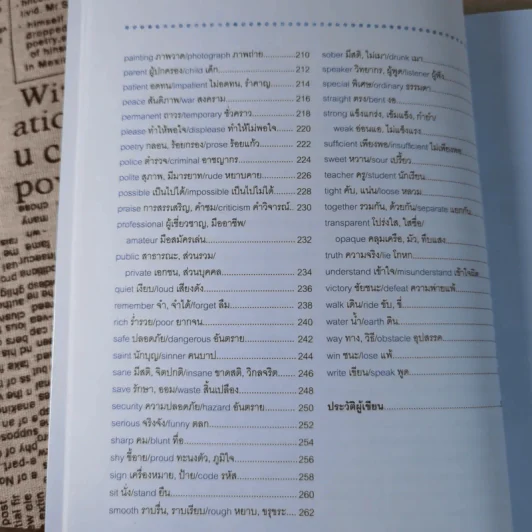 painting ภาพวาด/photograph ภาพถ่าย 210
parent ผู้ปกครอง/child เด็ก 212
patient อดทน/impatient ไม่อดทน, รำคาญ 214
peace สันติภาพ/war สงคราม 216
permanent ถาวร/temporary ชั่วคราว 218
please ทำให้พอใจ/displease ทำให้ไม่พอใจ 220
poetry กลอน, ร้อยกรอง/prose ร้อยแก้ว 222
police ตำรวจ/criminal อาชญากร 224
polite สุภาพ, มีมารยาท/rude หยาบคาย 226
possible เป็นไปได้/impossible เป็นไปไม่ได้ 228
praise การสรรเสริญ, คำชม/criticism คำวิจารณ์ 230
professional ผู้เชี่ยวชาญ, มืออาชีพ/
amateur มือสมัครเล่น 232
public สาธารณะ, ส่วนรวม/
private เอกชน, ส่วนบุคคล 234
quiet เงียบ/loud เสียงดัง 236
remember จำ, จำได้/forget ลืม 238
rich ร่ำรวย/poor ยากจน 240
safe ปลอดภัย/dangerous อันตราย 242
saint นักบุญ/sinner คนบาป 244
sane มีสติ, จิตปกติ/insane ขาดสติ, วิกลจริต 246
save รักษา, ออม/waste สิ้นเปลือง 248
security ความปลอดภัย/hazard อันตราย 250
serious จริงจัง/funny ตลก 252
sharp คม/blunt ทื่อ 254
shy ขี้อาย/proud ทะนงตัว, ภูมิใจ 256
sign เครื่องหมาย, ป้าย/code รหัส 258
sit นั่ง/stand ยืน 260
smooth ราบรื่น, ราบเรียบ/rough หยาบ, ขรุขระ 262
sober มีสติ, ไม่เมา/drunk เมา
speaker วิทยากร, ผู้พูด/listener ผู้ฟัง
special พิเศษ/ordinary ธรรมดา
straight ตรง/bent งอ
strong แข็งแกร่ง, เข้มแข็ง, กำยำ/
weak อ่อนแอ, ไม่แข็งแรง
sufficient เพียงพอ/insufficient ไม่เพียงพอ
sweet หวาน/sour เปรี้ยว
teacher ครู/student นักเรียน
tight คับ, แน่น/loose หลวม
together รวมกัน, ด้วยกัน/separate แยกกัน
transparent โปร่งใส, ใสซื่อ/
opaque คลุมเครือ, มัว, ทึบแสง
truth ความจริง/lie โกหก
understand เข้าใจ/misunderstand เข้าใจผิด
victory ชัยชนะ/defeat ความพ่ายแพ้
walk เดิน/ride ขับ, ขี่
water น้ำ/earth ดิน
way ทาง, วิธี/obstacle อุปสรรค
win ชนะ/lose แพ้
write เขียน/speak พูด
ประวัติผู้เขียน